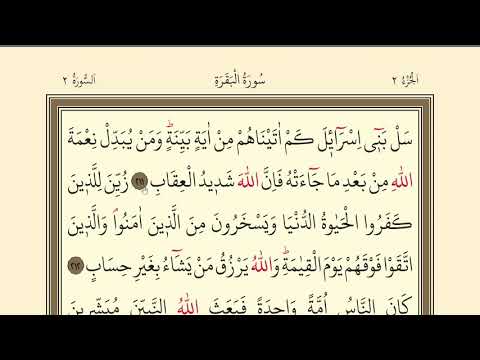 الجزء ٢ سورة البقرة السورة ٢
سَلْ بَنٖٓى اِسْرَآئٖلَ كَمْ اٰتَيْنَاهُمْ مِنْ اٰيَةٍ بَيِّنَةٍؕ وَمَنْ يُبَدِّلْ نِعْمَةَ
اللّٰهِ مِنْ بَعْدِ مَا جَٓاءَتْهُ فَاِنَّ اللّٰهَ شَدٖيدُ الْعِقَابِ ﴿٢١١﴾ زُيِّنَ لِلَّذٖينَ
كَفَرُوا الْحَيٰوةُ الدُّنْيَا وَيَسْخَرُونَ مِنَ الَّذٖينَ اٰمَنُواۘ وَالَّذٖينَ
اتَّقَوْا فَوْقَهُمْ يَوْمَ الْقِيٰمَةِؕ وَاللّٰهُ يَرْزُقُ مَنْ يَشَٓاءُ بِغَيْرِ حِسَابٍ ﴿٢١٢﴾
كَانَ النَّاسُ اُمَّةً وَاحِدَةً فَبَعَثَ اللّٰهُ النَّبِيّٖنَ مُبَشِّرٖينَ